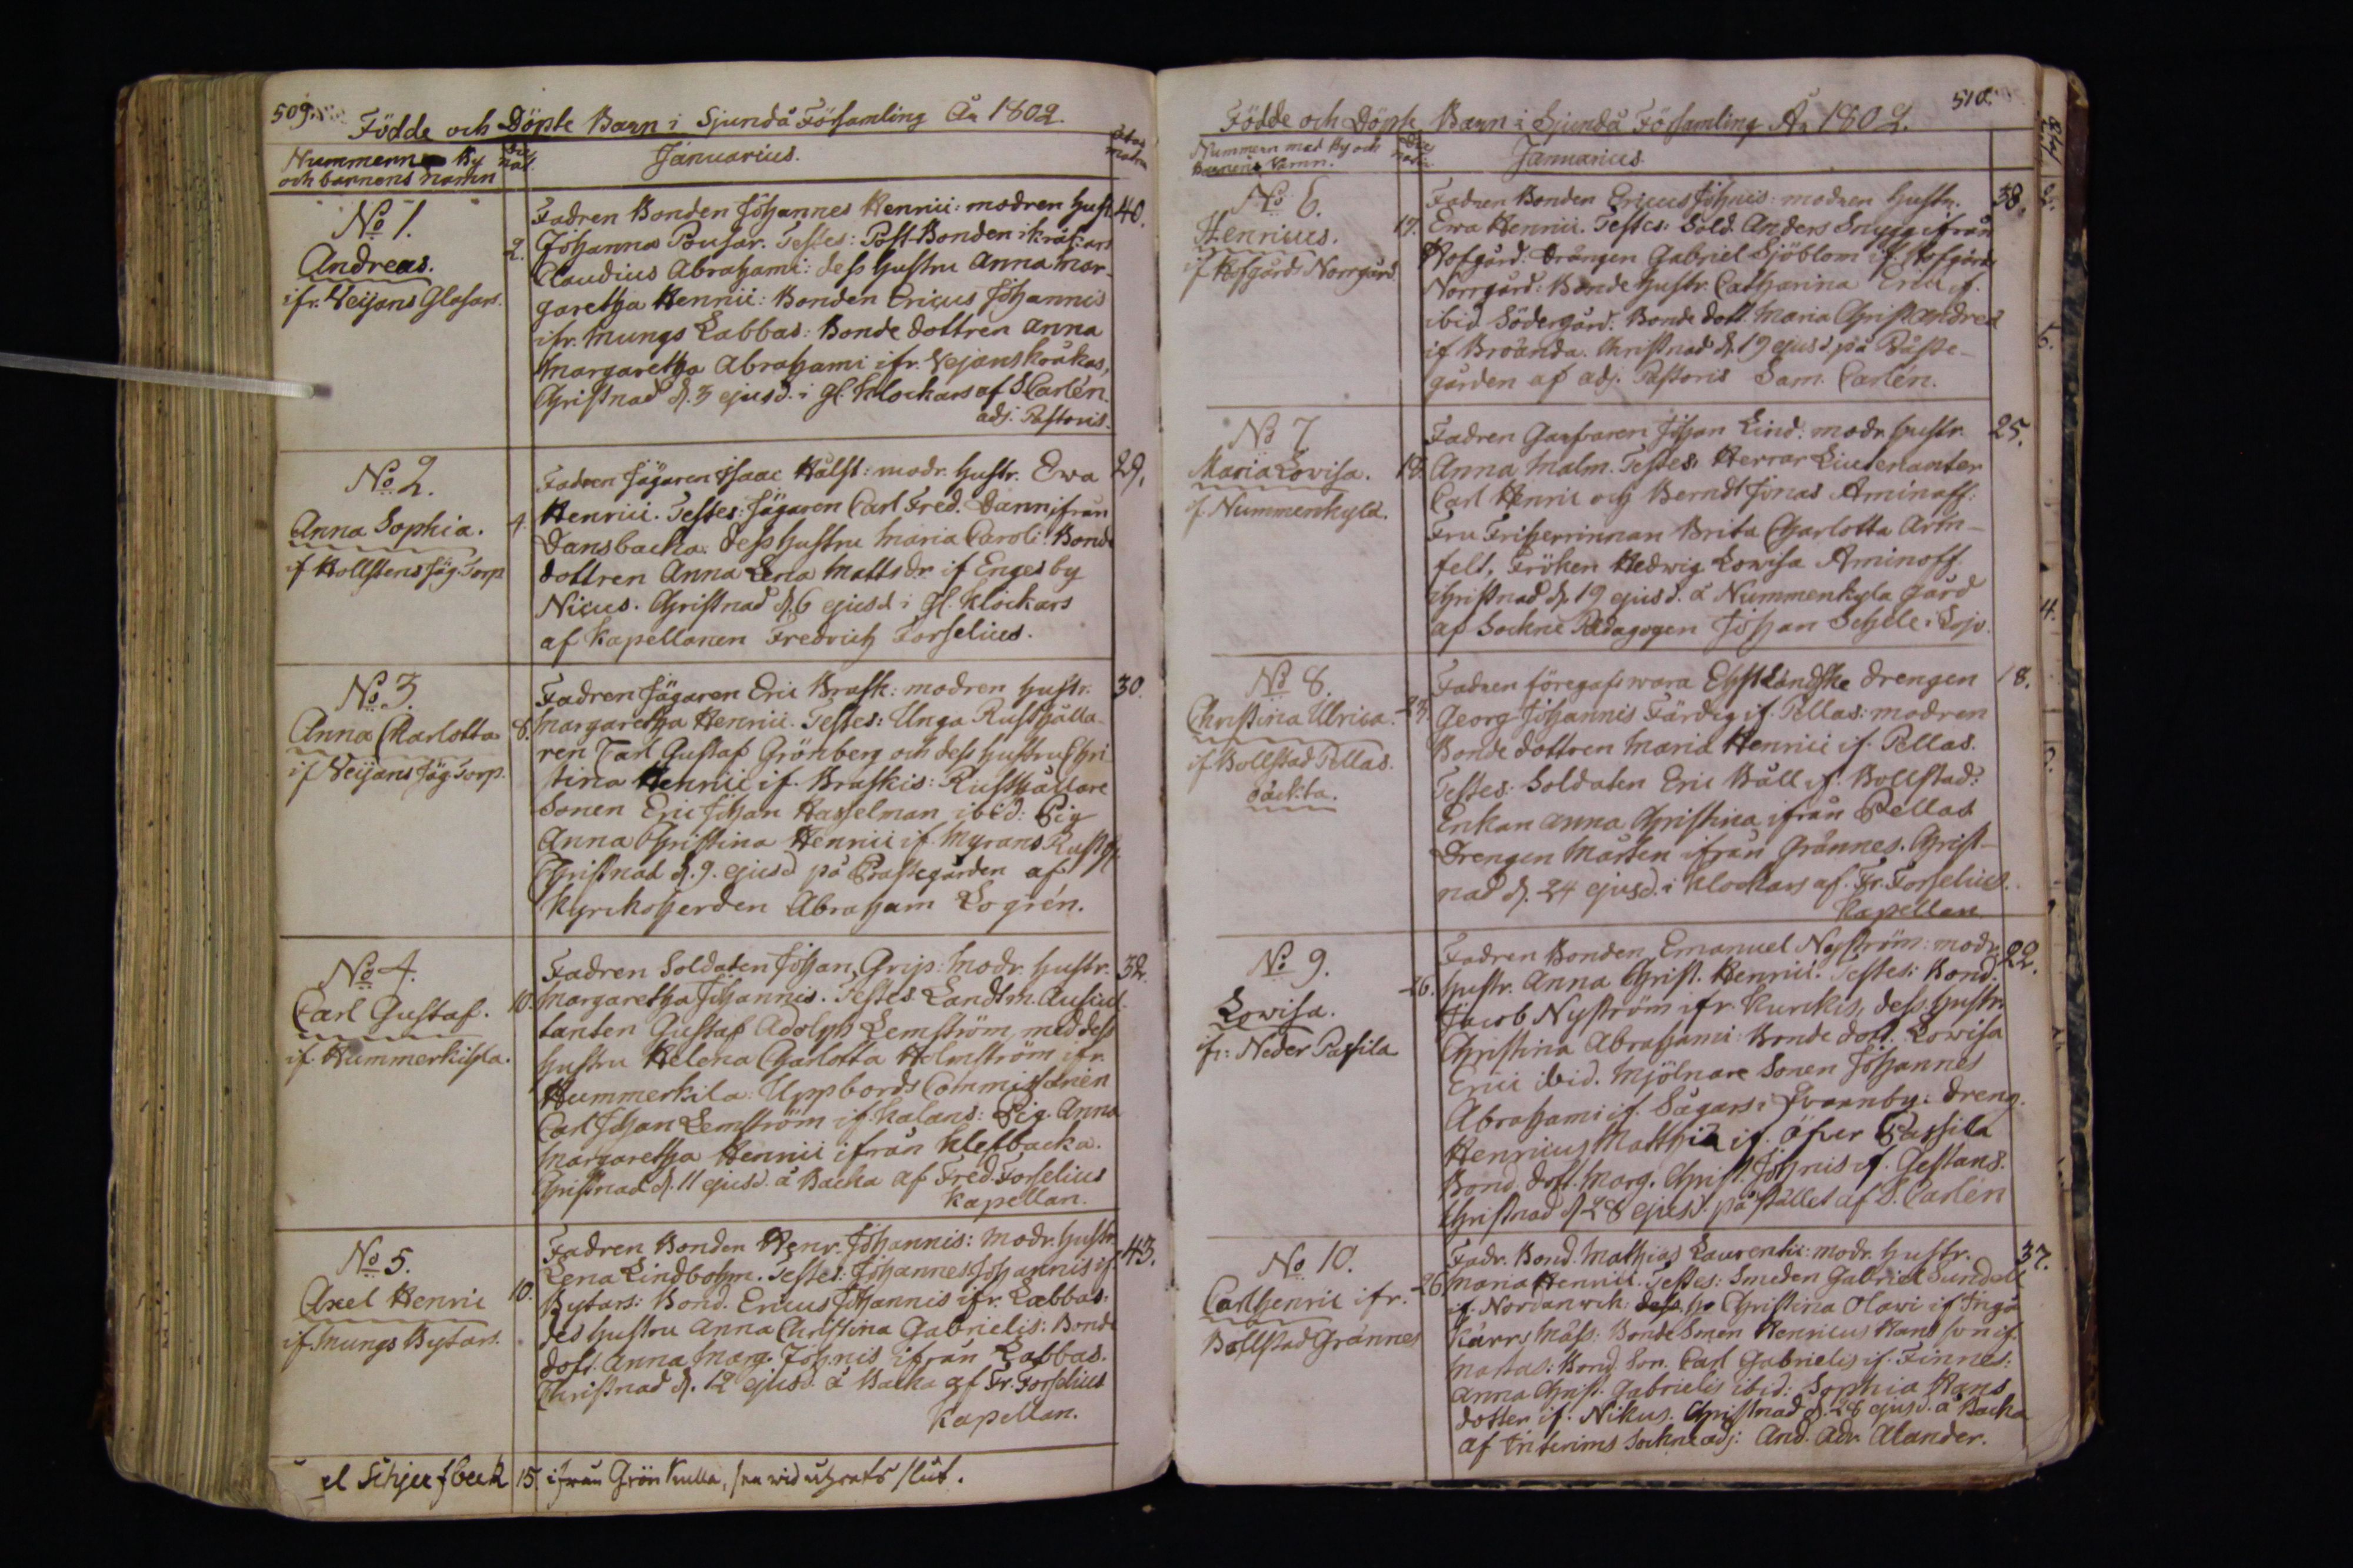 509.
Födde och Döpte Barn i Sjundå Församling År 1802.
Nummern By
och barnens namn
Januarius.
ætas
matr
No 1.
Andreas.
ifr. Veijans Glasars.
2.
Fadren Bonden Johannes Henrici: modren hust.
Johanna Pousar. Testes: Post-Bonden i kråkars
Claudius Abrahami: dess hustru Anna Mar-
garetha Henrici: Bonden Ericus Johannis
ifr. Mungs Labbas: Bonde dottren Anna
Margaretha Abrahami ifr. Vejans kråkas,
Christnad d. 3 ejusd. i gl. Klockars af S Carlén
adj. Pastoris.
40.
No 2.
Anna Sophia.
if Bollstens Jäg. Torp
4.
Fadren Jägaren Isaac Hälst: modr. hustr. Ewa
Henrici. Testes: Jägaren Carl Fred. Dann ifrån
Dansbacka: dess hustru Maria Caroli: Bonde
dottren Anna Lena Mattsdr. if Engesby
Nicus. Christnad d. 6 ejusd i Gl. Klockars
af Kapellanen Fredrich Forselius.
29.
No 3.
Anna Charlotta
if Veijans Jäg. Torp.
8.
Fadren Jägaren Eric Brask: modren hustr.
Margaretha Henrici. Testes: Unga Rusthålla-
ren Carl Gustaf Grönberg och dess hustru Chri-
stina Henrici if. Braskis: Rusthållare
Sonen Eric Johan Hasselman ibid: Pig
Anna Christina Henrici if. Myrans Rusth.
Christnad d. 9. ejusd på Prästegården af
Kyrckoherden Abraham Logrén.
30.
No 4.
Carl Gustaf.
if. Hummerkihla.
10.
Fadren Soldaten Johan Grip: Modr. hustr.
Margaretha Johannis. Testes Landtm. Auscul
tanten Gustaf Adolph Lemström, med dess
hustru Helena Charlotta Holmström ifr.
Hummerkila: Uppbords Commissarien
Carl Johan Lemström if. Kalans: Pig. Anna
Margaretha Henrici ifrån Klefbacka.
Christnad d. 11 ejusd. å Backa af Fred. Forselius
Kapellan.
32.
No 5.
Axel Henric
if. Mungs Bytars.
10.
Fadren Bonden Henr. Johannis: Modr. hustr.
Lena Lindbohm. Testes: Johannes Johannis if.
Bytars: Bond. Ericus Johannis ifr. Labbas:
des hustru Anna Christina Gabrielis: Bonde
dott. Anna Marg. Johnis ifrån Labbas.
Christnad d. 12 ejusd. å Backa af Fr. Forselius
Kapellan.
43.
el Schjerfbeck 15. ifrån Grön Kulla, se wid årets slut.
510.
Födde och Döpte Barn i Sjundå Församling År 1802.
Nummern med By och
Barnens Namn.
Januarius.
No 6.
Henricus.
if Hofgårds Norrgård
17.
Fadren Bonden Ericus Johnis: modren hustr.
Ewa Henrici. Testes: Sold. Anders Snygg ifrån
Hofgård. Drängen Gabriel Sjöblom if. Hofgårds
Norrgård: Bonde hustr. Catharina Erici if.
ibid Södergård. Bonde dott. Maria Christ Andreæ
if Broända. Christnad d. 19 ejusd. på Präste-
gården af adj. Pastoris Sam. Carlén.
38.
No 7.
Maria Lovisa.
if. Nummenkyla.
18.
Fadren Garfvaren Johan Lind: modr. hustr.
Anna Malm. Testes: Herrar Lieutenanter
Carl Henric och Berndt Jonas Aminoff:
Fru Friherrinnan Brita Charlotta Arm-
felt, Fröken Hedwig Lovisa Aminoff.
Christnad d. 19 ejusd. å Nummenkyla Gård
af Sockne Pædagogen Johan Schele i Lojo.
25.
No 8.
Christina Ulrica.
if Bollstad Pellas.
oäckta.
23.
Fadren föregafs wara Ehstländske drengen
Georg Johannis Färdig if. Pellas: modren
Bonde dottren Maria Henrici if. Pellas.
Testes: Soldaten Eric Båll if. Bollstad:
Enkan Anna Christina ifrån Pellas
Drengen Mårten ifrån Grännes. Christ-
nad d. 24 ejusd. i Klockars af. Fr. Forselius.
Kapellan.
18.
No 9.
Lovisa.
ifr: Neder Passila
26.
Fadren Bonden Emanuel Nyström: modr.
hustr. Anna Christ. Henrici. Testes: Bond.
Jacob Nyström ifr. Kurckis, dess hustr.
Christina Abrahami: Bonde dott. Lovisa
Erici ibid. Mjölnare Sonen Johannes
Abrahami if. Sågars i Qvarnby: dreng.
Henricus Matthiæ if. Öfver Passila
Bond. dott. Marg. Christ. Johnis if. Gestans.
Christnad d 28 ejusd. på stället af S. Carlén
22.
No 10.
Carl Henric ifr.
Bollstad Grännes
26.
Fadr. Bond. Mathias Laurentii: modr. hustr.
Maria Henrici. Testes: Smeden Gabriel Sundell
if. Nordanvik: dess hr Christina Olavi if Ingå
Kärrs Måss: Bonde Sonen Henricus Hans son if.
Martas: Bond. Son. Carl Gabrielis if. Finnes:
Anna Christ. Gabrielis ibid: Sophia Hans
dotter if. Nikus. Christnad d. 28 ejusd. å Backa
af Interims Sockne adj: And. Adr. Alander.
37.